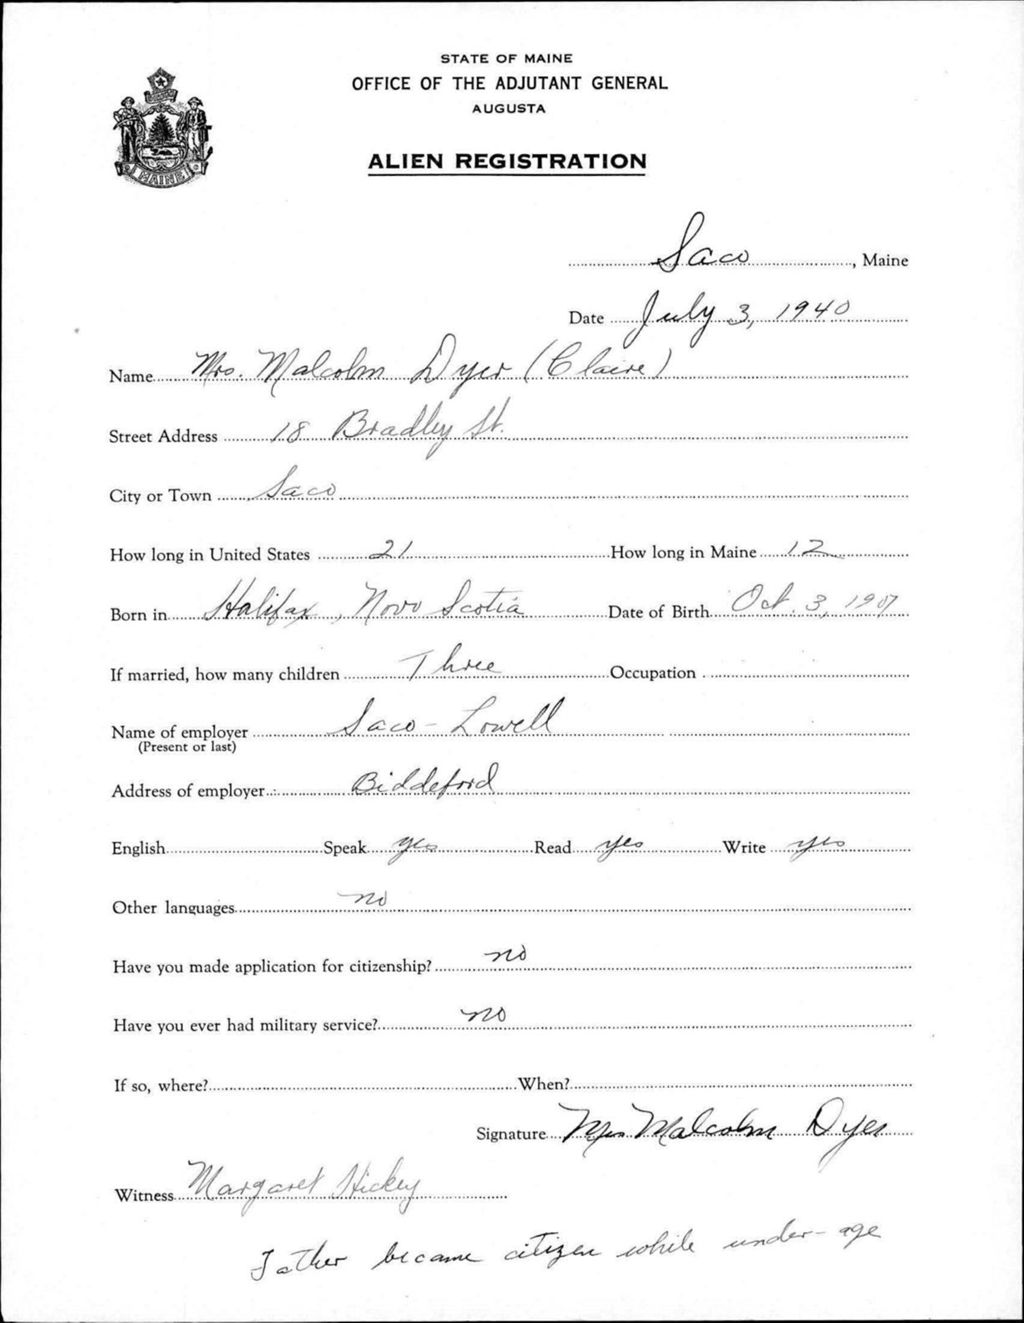 STATE OF MAINE
OFFICE OF THE ADJUTANT GENERAL
AUGUSTA
MAINE
ALIEN REGISTRATION
Saco, Maine
Date July 3, 1940
Name Mrs. Malcolm Dyer (Claire)
Street Address 18 Bradley St.
City or Town Saco
How long in United States 21 How long in Maine 12
Born in Halifax, Nova Scotia Date of Birth Oct. 3, 1907
If married, how many children Three Occupation
Name of employer Saco-Lowell
(Present or last)
Address of employer Biddeford
English Speak yes Read yes Write yes
Other languages no
Have you made application for citizenship? no
Have you ever had military service? no
If so, where? When?
Signature Mrs Malcolm Dyer
Witness Margaret Hickey
Father became citizen while under-age